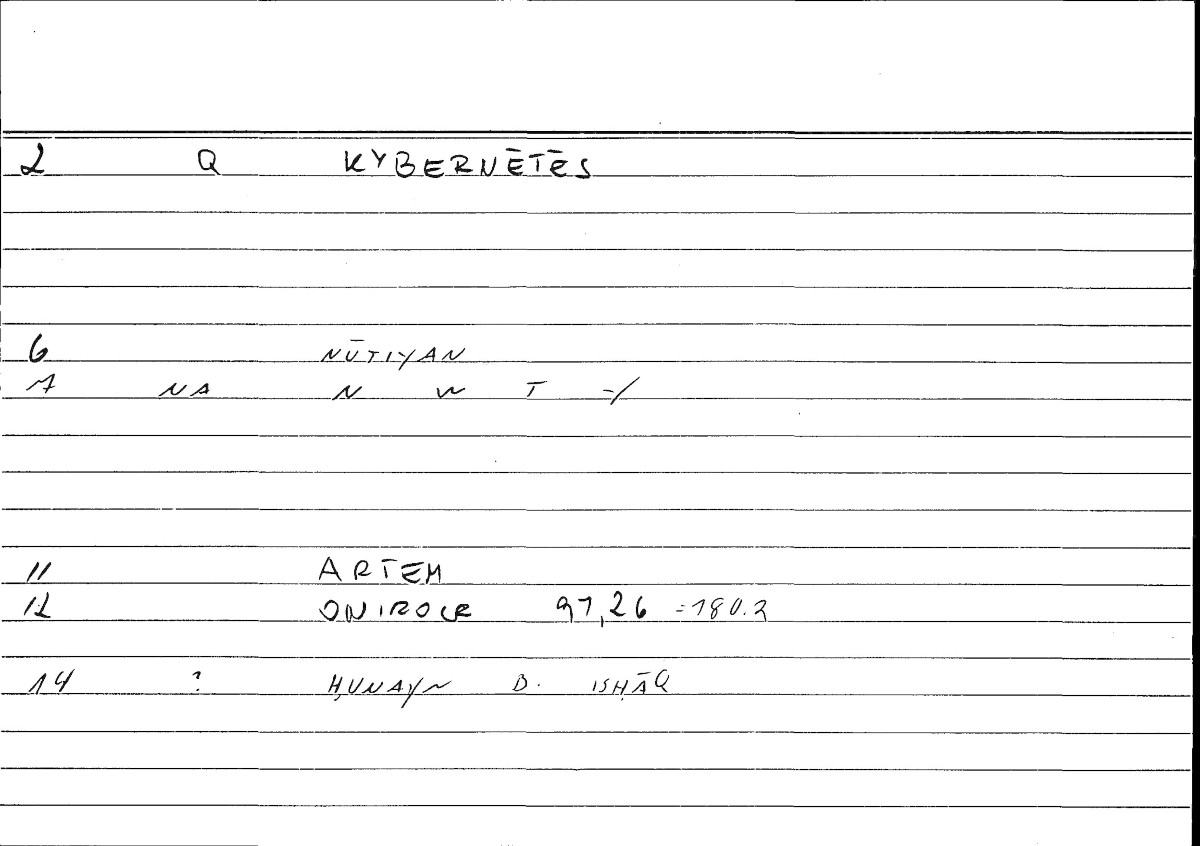 2 Q KYBERNĒTĒS
6 NŪTIYAN
7 NA N W T =/
11 ARTEM
12 ONIROCR 97,26 =180.2
14 ? ḤUNAYN B. ISḤĀQ